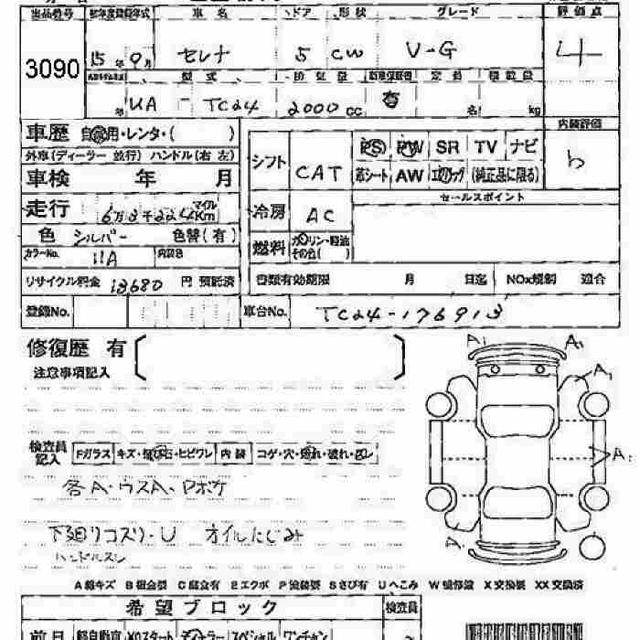 出品番号 初年度登録年式 車名 ドア 形状 グレード 評価点
3090 15年9月 セレナ 5 CW V-G 4
型式 排気量 定員 積載量
年 UA-TC24 2000cc 名 kg
車歴 自家用・レンタ・( ) 内装評価
外車(ディーラー 並行) ハンドル(右 左) シフト CAT PS PW SR TV ナビ b
車検 年 月 革シート AW エアバッグ (純正品に限る)
走行 6万3千224 マイル Km 冷房 AC セールスポイント
色 シルバー 色替(有) 燃料 ガソリン・軽油 その他( )
カラーNo. 11A 内装色
リサイクル料金 13680 円 預託済 書類有効期限 月 日迄 NOx規制 適合
登録No. 車台No. TC24-176913
修復歴 有
注意事項記入
A1
A1
A1
検査員記入 Fガラス キズ・飛び石・ヒビワレ 内装 コゲ・穴・汚れ・破れ・凹レ
A2
各A・ウスA、Pボケ
下廻りコスリ・U オイルにじみ
ハンドルスレ
A線キズ B板金要 C腐食有 Eエクボ P塗装要 Sさび有 Uへこみ W補修跡 X交換要 XX交換済
希望ブロック 検査員
前日 軽自動車 ¥0スタート ディーラー スペシャル ワンチャン